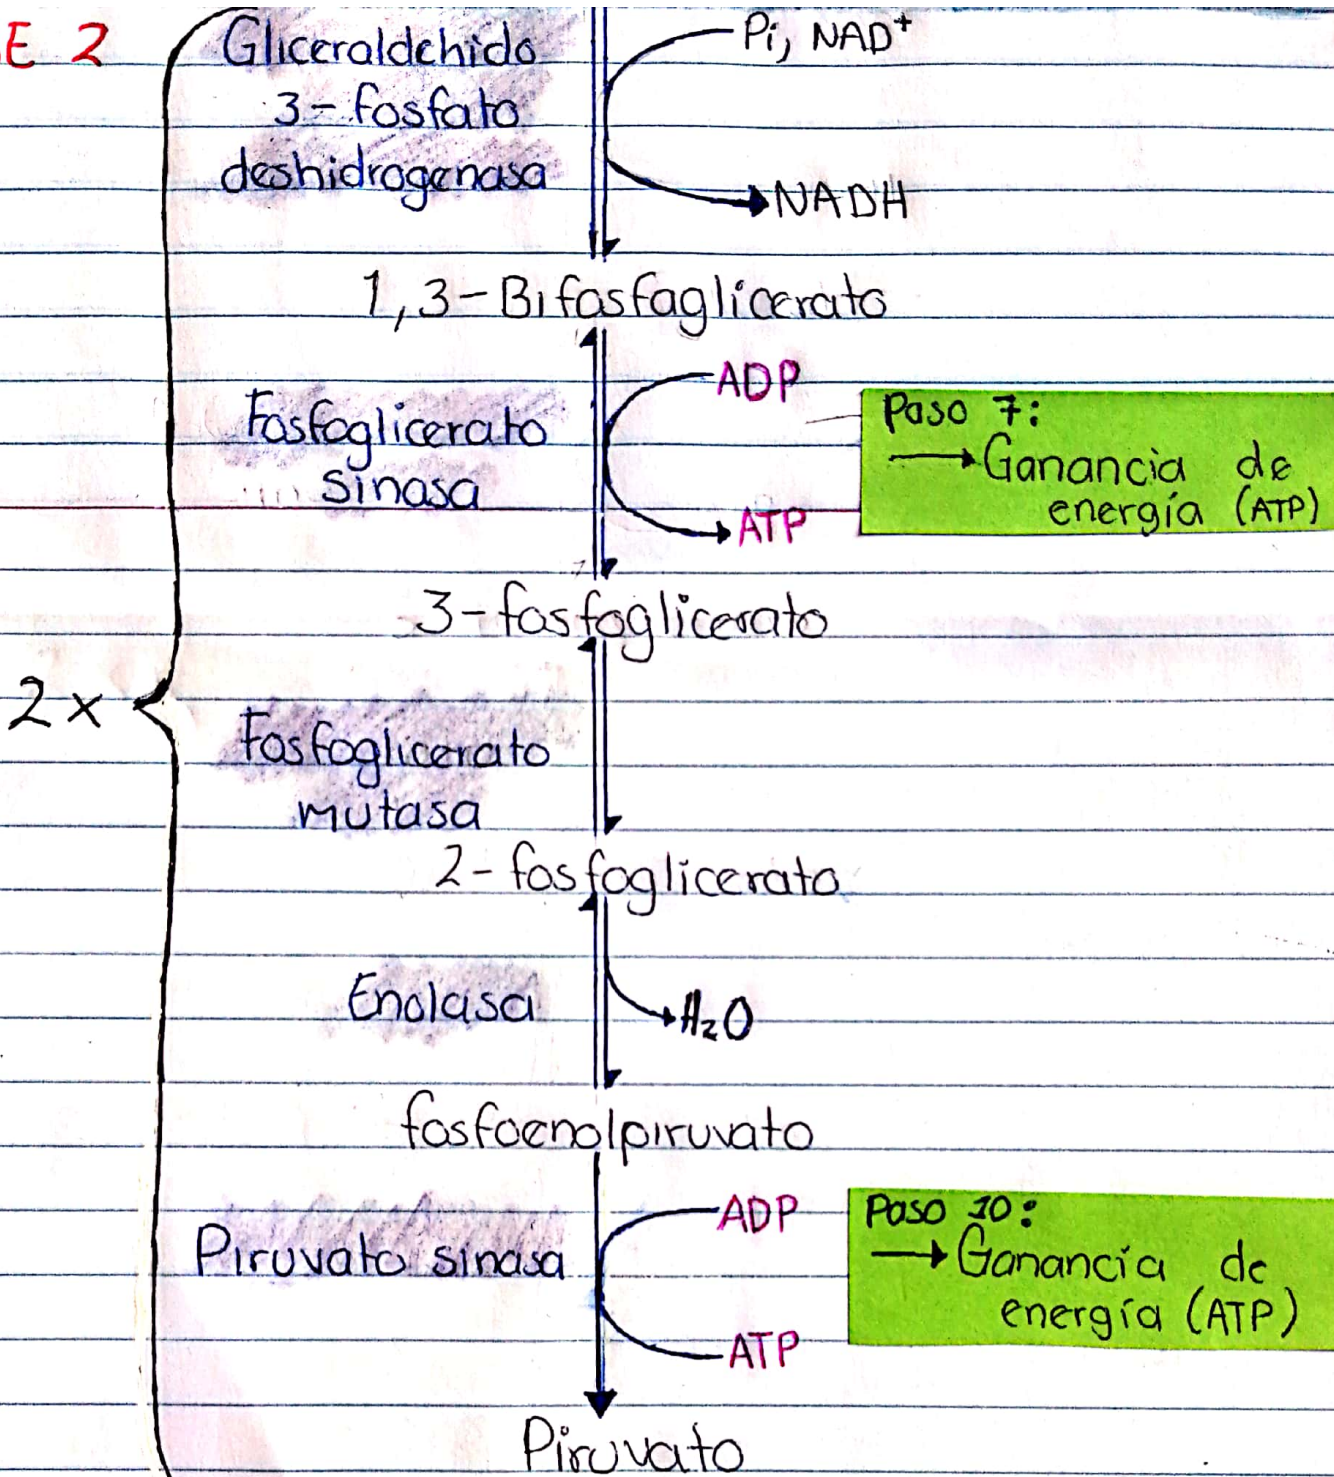 E 2
Gliceraldehido
3-fosfato
deshidrogenasa
Pi, NAD⁺
NADH
1,3-Bifosfaglicerato
Fosfoglicerato
sinasa
ADP
ATP
Paso 7:
→Ganancia de
energía (ATP)
3-fosfoglicerato
2x
Fosfoglicerato
mutasa
2-fosfoglicerato
Enolasa
H₂O
fosfoenolpiruvato
Piruvato sinasa
ADP
ATP
Paso 10:
→Ganancia de
energía (ATP)
Piruvato